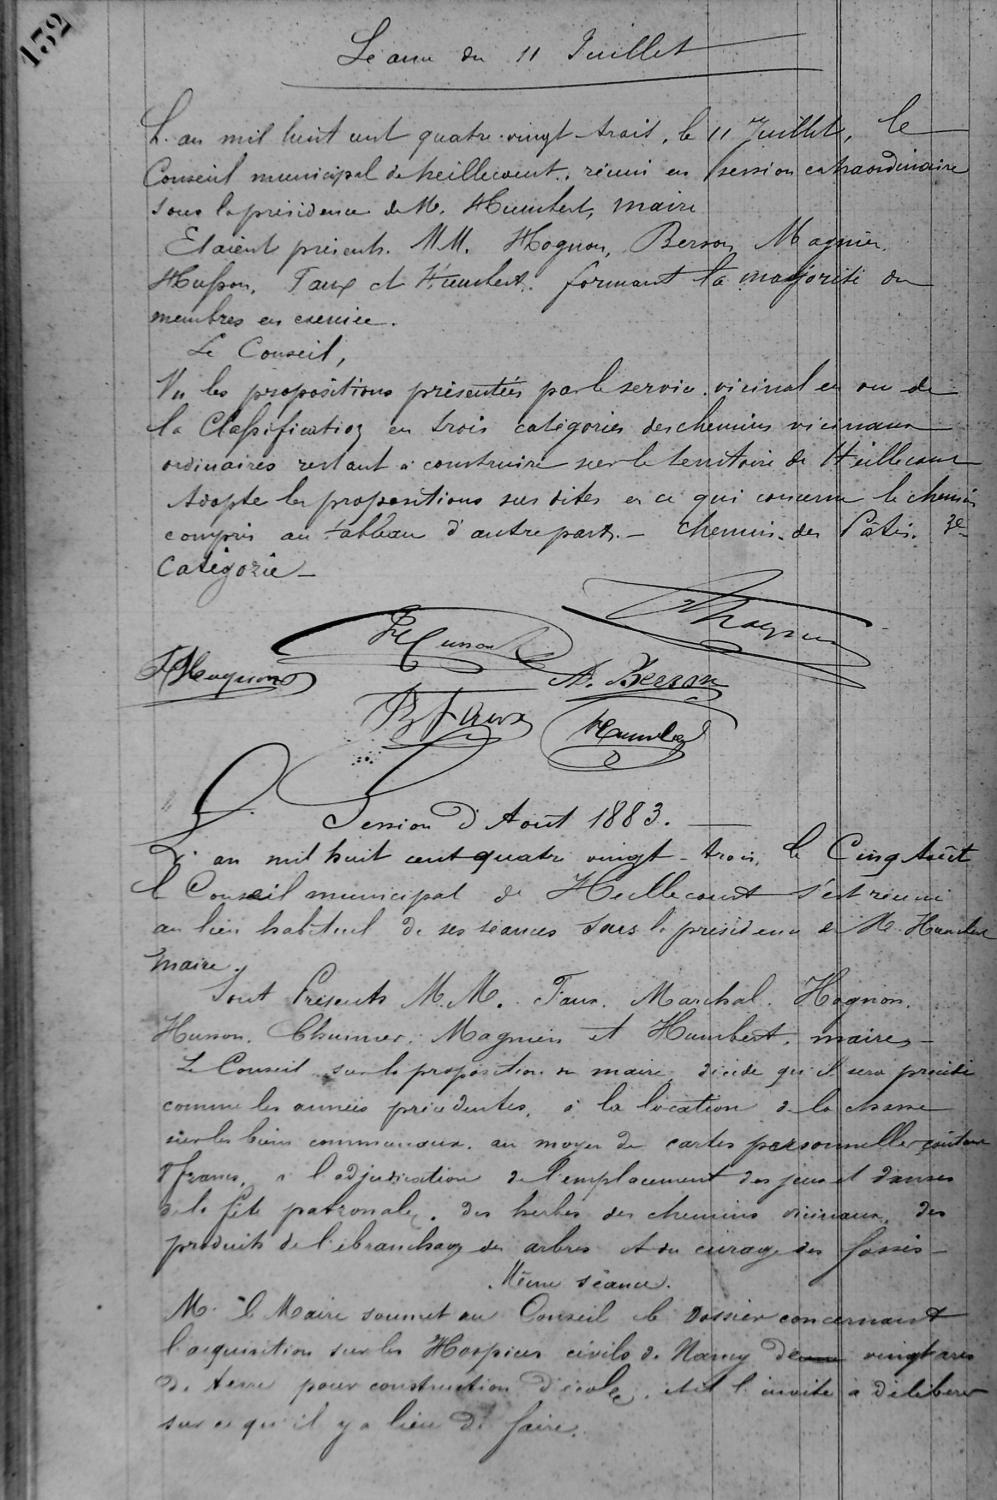 132
Séance du 11 Juillet
L'an mil huit cent quatre-vingt-trois, le 11 Juillet, le
Conseil municipal de heillecourt, réuni en session extraordinaire
sous la présidence de M. Humbert, maire
Etaient présents MM. Hognon, Berson, Magnien,
Husson, Faux et Humbert. formant la majorité des
membres en exercice.
Le Conseil,
Vu les propositions présentées par le service vicinal en vue de
la Classification en trois catégories des chemins vicinaux
ordinaires restant à construire sur le territoire de Heillecourt
Adopte les propositions sus dites en ce qui concerne le chemin
compris au tableau d'autre part. - Chemin des Pâtis.
Catégorie -
Magnien
Husson
Hognon
A. Berson
B Faux
Humbert
Session d'Aout 1883.
L'an mil huit cent quatre vingt-trois, le Cinq Août
le Conseil municipal de Heillecourt s'est réuni
au lieu habituel de ses séances sous la présidence de M. Humbert
maire.
Sont Présents M.M. Faux. Marchal. Hognon.
Husson. Magnien et Humbert, maire -
Le Conseil sur la proposition du maire décide qu'il sera procédé
comme les années précédentes, à la location de la chasse
sur les biens communaux au moyen de cartes personnelles
francs, à l'adjudication de l'emplacement des jeux et danses
de la fête patronale, des herbes des chemins vicinaux, des
produits de l'ébranchage des arbres et du curage des fossés -
Même séance.
M. le Maire soumet au Conseil le dossier concernant
l'acquisition sur les Hospices civils de Nancy de vingt ares
de terre pour construction d'école, et il l'invite à délibérer
sur ce qu'il y a lieu de faire.